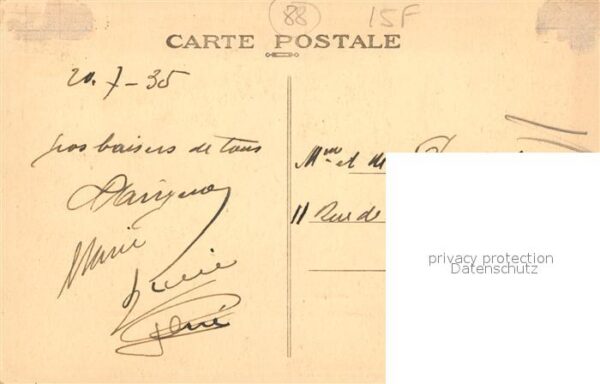 88 15F
CARTE POSTALE
20.7-35
gros baisers de tous
Marie
Mme et de
11 Rue de
privacy protection
Datenschutz